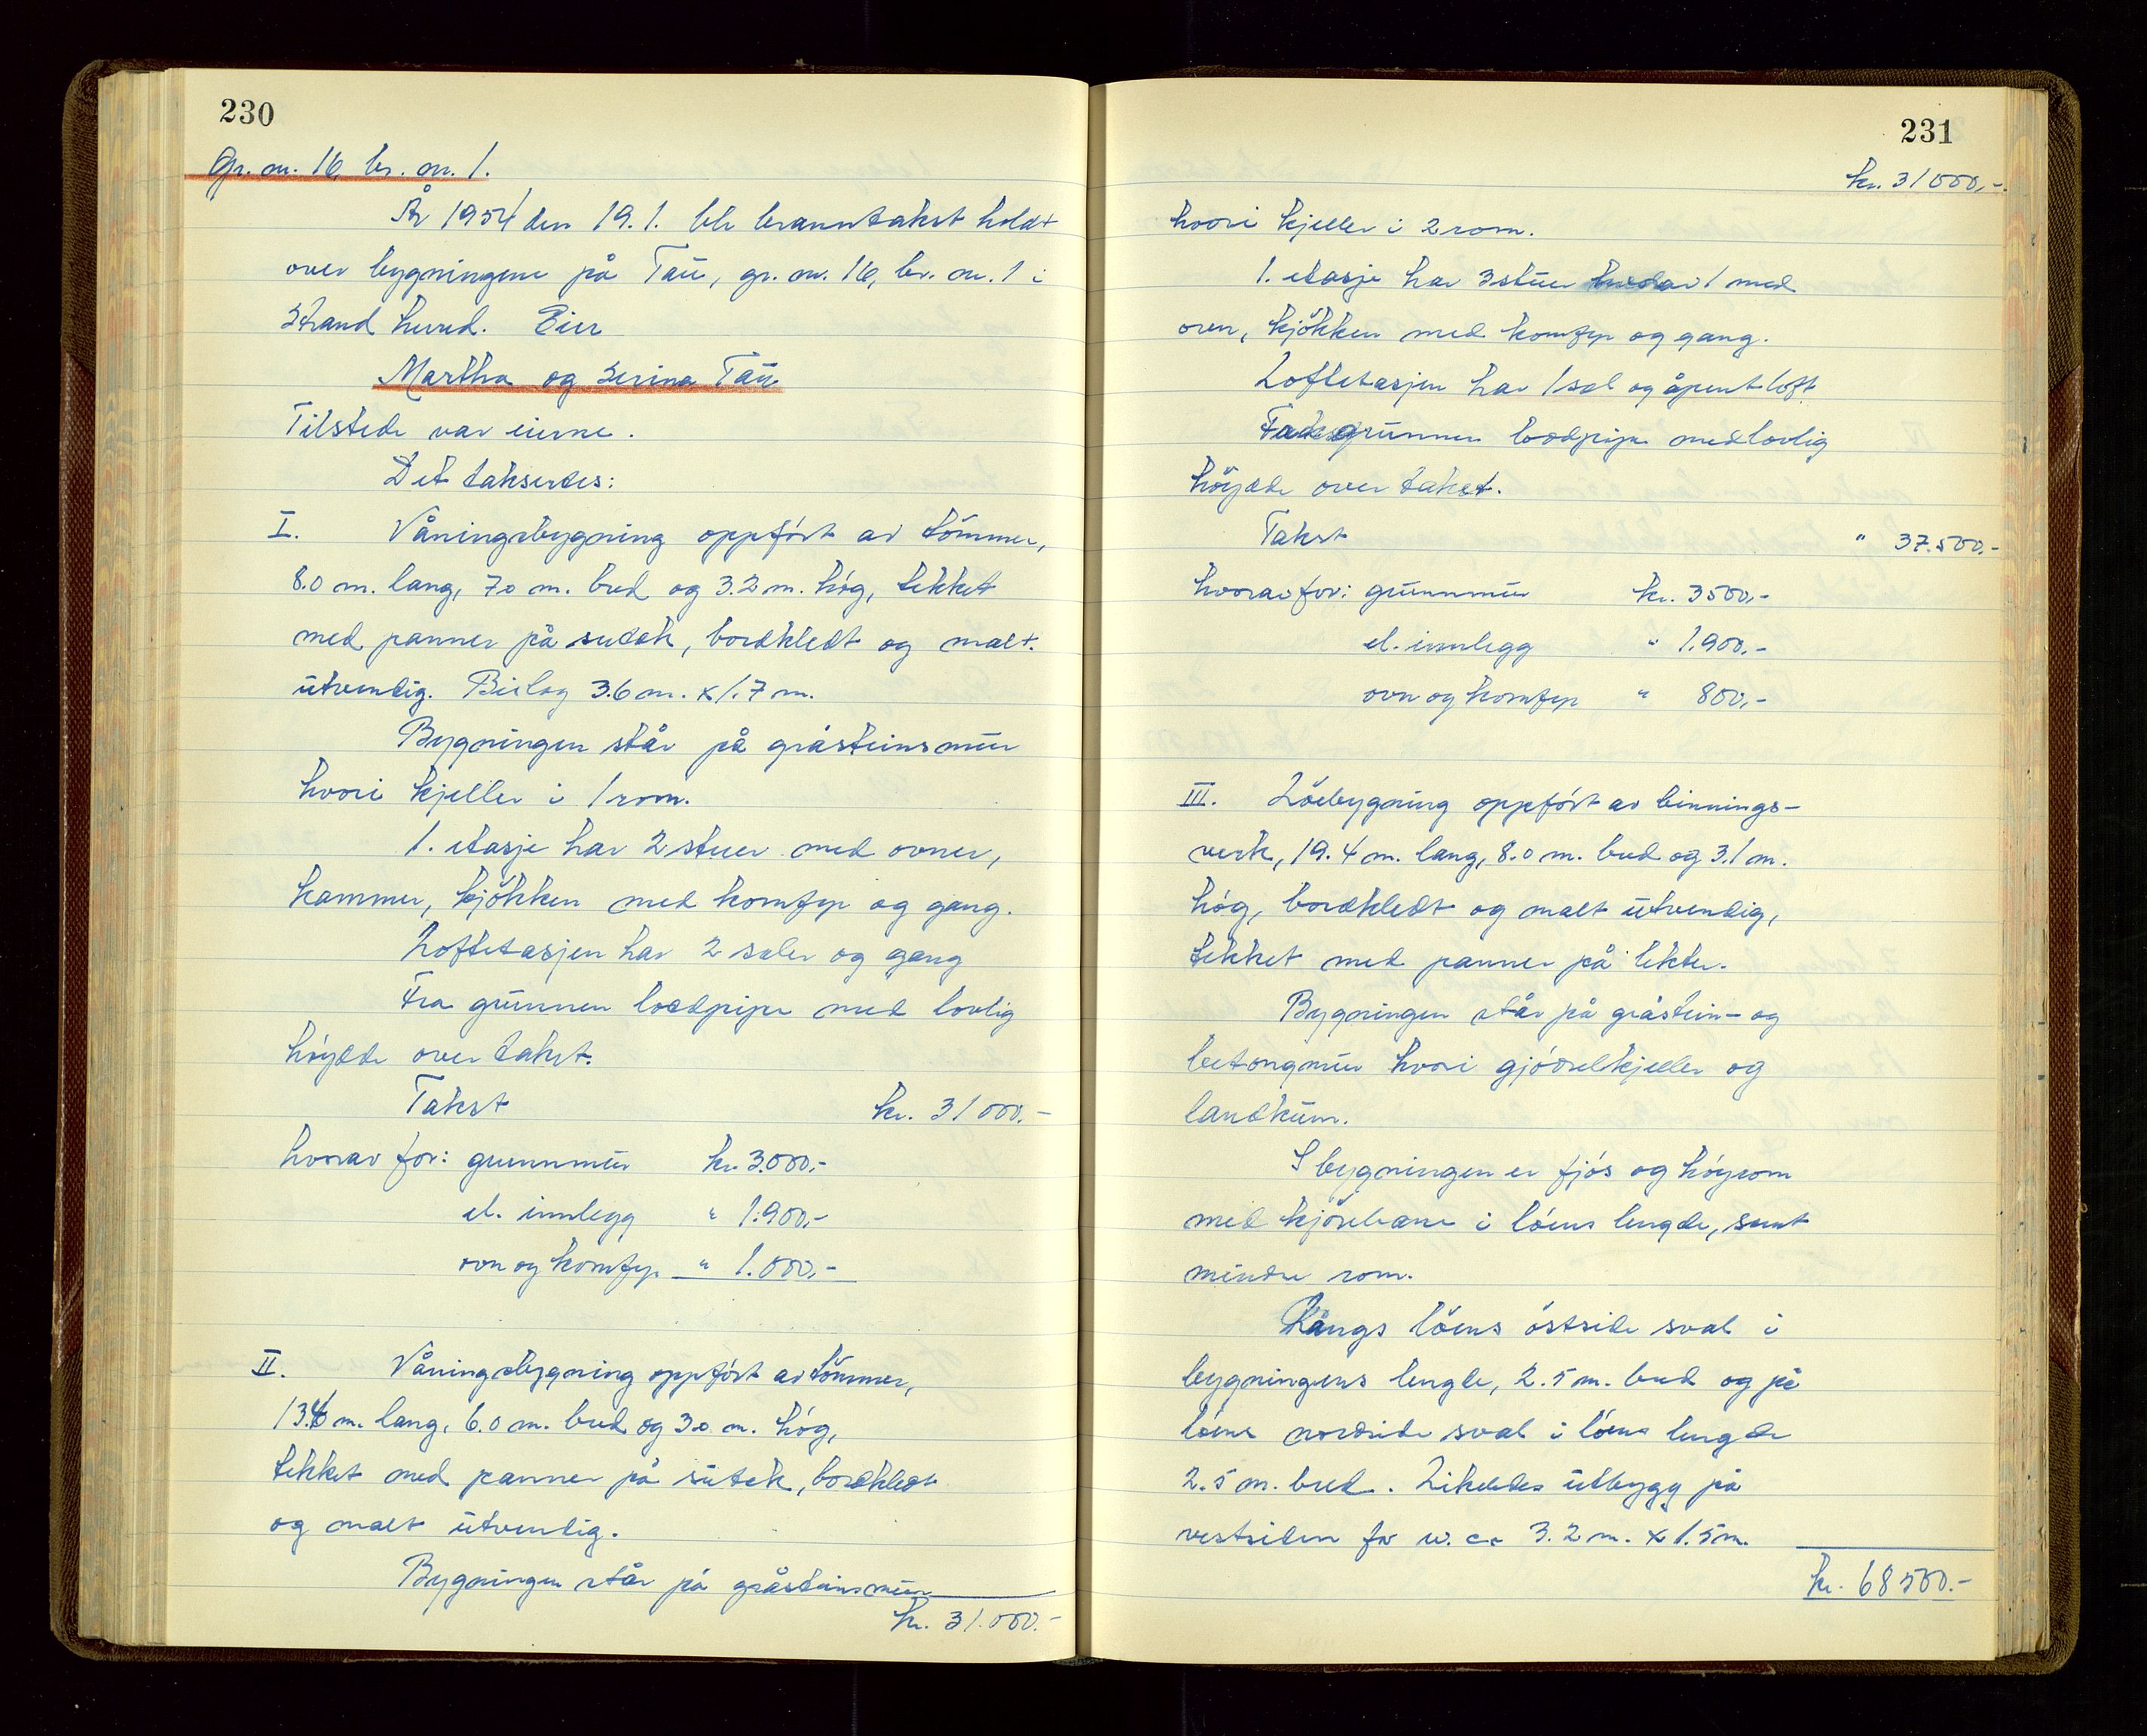 230
Gr. nr. 16, br. nr. 1.
År 1954 den 19. 1. ble branntakst holdt
over bygningene på Tau, gr. nr. 16, br. nr. 1 i
Strand herred. Eier
Martha og Serina Tau
Tilstede var eierne.
Det taksertes:
I. Våningsbygning oppført av tømmer,
8.0 m. lang, 7.0 m. bred og 3.2 m. høg, tekket
med panner på sutak, bordkledt og malt
utvendig. Bislag 3.6 m. x 1.7 m.
Bygningen står på gråsteinsmur
hvori kjeller i 1 rom.
1. etasje har 2 stuer med ovner,
kammer, kjøkken med komfyr og gang.
Loftetasjen har 2 saler og gang
Fra grunnen loddpipe med lovlig
høyde over taket.
Takst kr. 31000.-
hvorav for: grunnmur kr. 3.000,-
el. innlegg " 1.900,-
ovn og komfyr " 1.000,-
II. Våningsbygning oppført av tømmer,
m. lang, 6.0 m. bred og 3.0 m. høg,
tekket med panner på sutak, bordkledt
og malt utvendig.
Bygningen står på gråsteinsmur
kr. 31.000.-
231
kr. 31000,-
hvori kjeller i 2 rom.
1. etasje har 3 stuer hvorav 1 med
ovn, kjøkken med komfyr og gang.
Loftetasjen har 1 sal og åpent loft
Fra grunnen loddpipe med lovlig
høyde over taket.
Takst " 37.500.-
hvorav for: grunnmur kr. 3500,-
el. innlegg " 1.900.-
ovn og komfyr " 800,-
III. Løebygning oppført av binnings-
verk, 19.4 m. lang, 8.0 m. bred og 3.1 m.
høg, bordkledt og malt utvendig,
tekket med panner på lekter.
Bygningen står på gråstein- og
betongmur hvori gjødselkjeller og
landkum.
I bygningen er fjøs og høyrom
med kjørebane i løens lengde, samt
mindre rom.
Langs løens østside sval i
bygningens lengde, 2.5 m. bred og på
løens nordside sval i løens lengde
2.5 m. bred. Likeledes utbygg på
vestsiden for w.c. 3.2 m. x 1.5 m.
kr. 68500.-